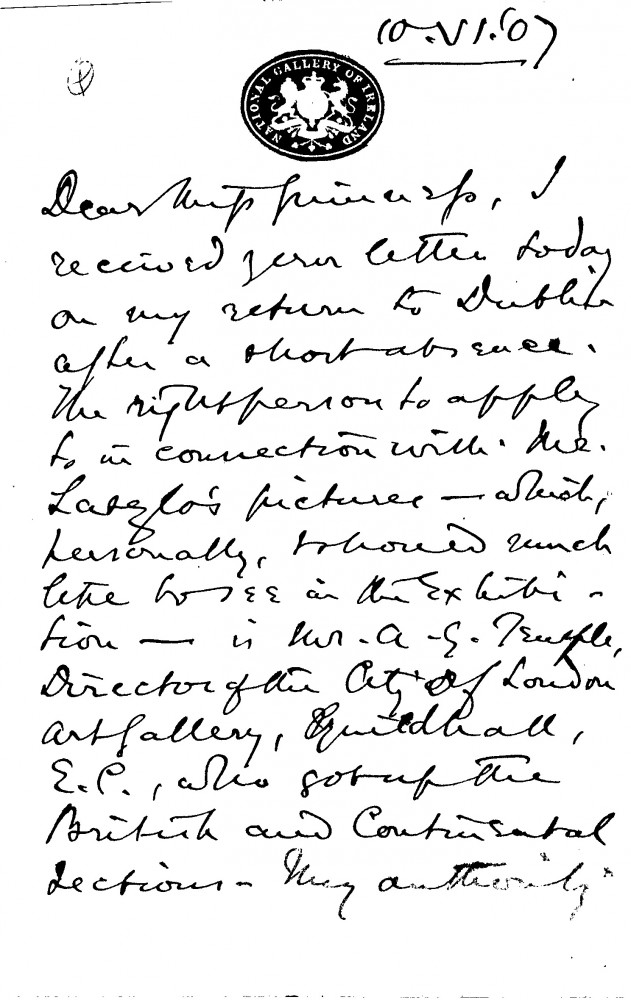 10.VI.'07
NATIONAL GALLERY OF IRELAND
Dear Miss Guinness, I
received your letter today
on my return to Dublin
after a short absence.
The right person to apply
to in connection with Mr.
Laszlo's pictures — which,
personally, I should much
like to see in the Exhibi-
tion — is Mr. A. G. Temple,
Director of the City of London
Art Gallery, Guildhall,
E.C., who got up the
British and Continental
Sections - My authority